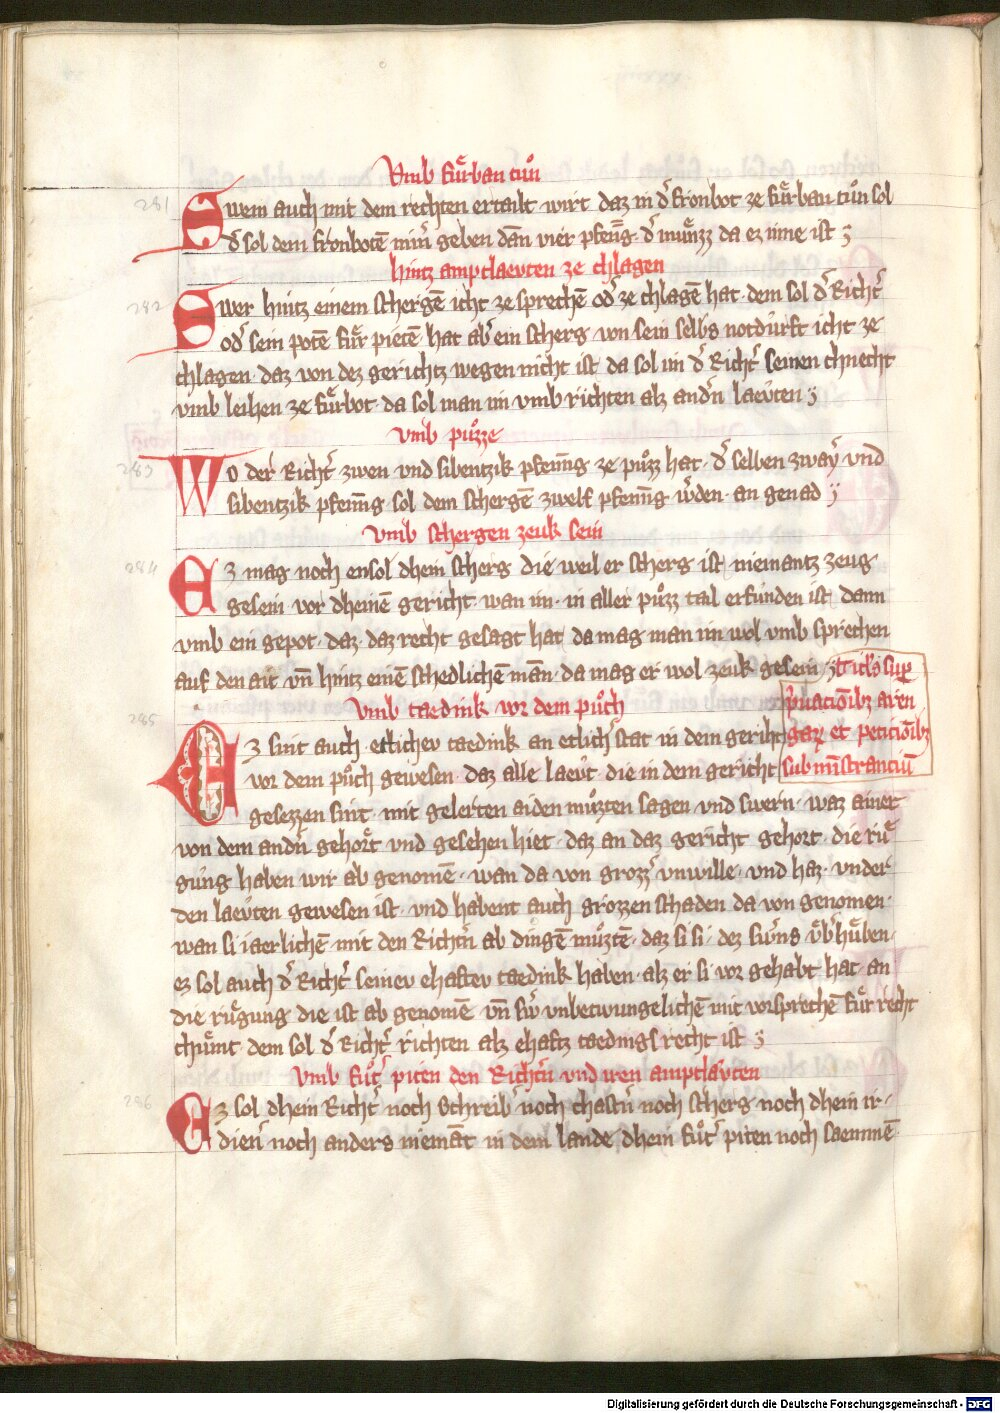 Vmb fuͤrban tuͦn
281 Swem auch mit dem rechten ertailt wirt daz in dˀ fronbot ze fuͤrban tuͦn sol
dˀ sol dem fronbotē minˀ geben dān vier pfenīg · dˀ muͤnzz da ez inne ist
hintz amptlaevten ze chlagen
282 Swer hintz einem schergē icht ze sprechē odˀ ze chlagē hat · dem sol dˀ Richtˀ
odˀ sein potē fuͤr pietē hat abˀ ein scherg von sein selbs notdurft icht ze
chlagen · daz von dez gerichtz wegen nicht ist da sol im dˀ Richtˀ seinen chnecht
vmb leihen ze fuͤrbot · da sol man im vmb richten alz andˀn laevten
vmb puͦzze
283 Wo der Richtˀ zwen vnd sibentzik pfening ze puͦzz hat · dˀ selben zwaẏ vnd
sibentzik pfening · sol dem schergē zwelf pfening wˀden · an genad
vmb schergen zeuk sein
284 Ez mag noch ensol dhein scherg die weil er scherg ist niemantz zeug
gesein · vor dheinē gericht · wan im · in aller puͦzz tail erfunden ist dann
vmb ein gepot · daz · daz recht gesagt hat da mag man im wol vmb sprechen
auf den ait vn̄ hintz einē schedlichē man̄ · da mag er wol zeuk gesein Ticlˀs sup
vmb taedink vor dem puͦch pˀuacioībz aren
285 Ez sint auch · etlichev taedink an etlichˀ stat in dem geriht gaꝝ et peticioībz
vor dem puͦch gewesen · daz alle laevt · die in dem gericht submīstranciū
gesezzen sint · mit gelerten aiden muͦzten sagen vnd swern · waz ainer
von dem andˀn gehoͤrt vnd gesehen hiet · daz an daz gericht gehort · die ruͤ
gung haben wir ab genomē · wan da von grozzˀ vnwille · vnd haz · vnder
den laevten gewesen ist · vnd habent auch grozzen schaden da von genomen ·
wan si iaerlichē mit den Richtˀn ab dingē muͦztē · daz si si · dez swˀns vͤbˀhuͤben ·
ez sol auch dˀ Richtˀ seinev ehaftev taedink haben · alz er si vor gehabt hat · an
die ruͤgung die ist ab genomē vn̄ swˀ vnbetwungelichē mit vorsprechē fuͤr recht
chuͤmt · dem sol dˀ Richtˀ richten alz ehaftz taedings recht ist
Vmb fuͦtˀ piten den Richtˀn vnd iren amptlaͤvten
286 Ez sol dhein Richtˀ noch Schreibˀ noch chastnˀ noch scherg · noch dhein ir
dienˀ noch anders niemāt in dem lande dhein fuͦtˀ piten noch saemmē
Digitalisierung gefördert durch die Deutsche Forschungsgemeinschaft - DFG